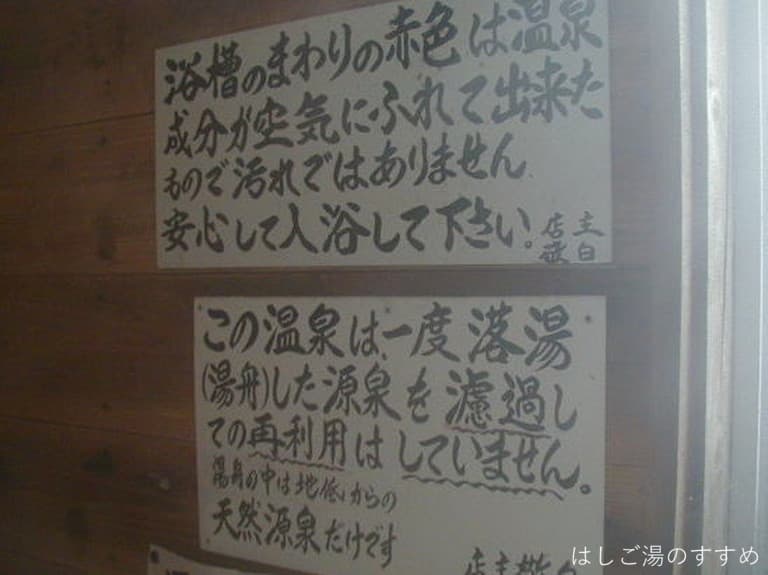 浴槽のまわりの赤色は温泉
成分が空気にふれて出来た
もので汚れではありません
安心して入浴して下さい。
店主
敬白
この温泉は、一度落湯
(湯舟)した源泉を濾過し
ての再利用はしていません。
湯舟の中は地低からの
天然源泉だけです
店主敬白
はしご湯のすすめ